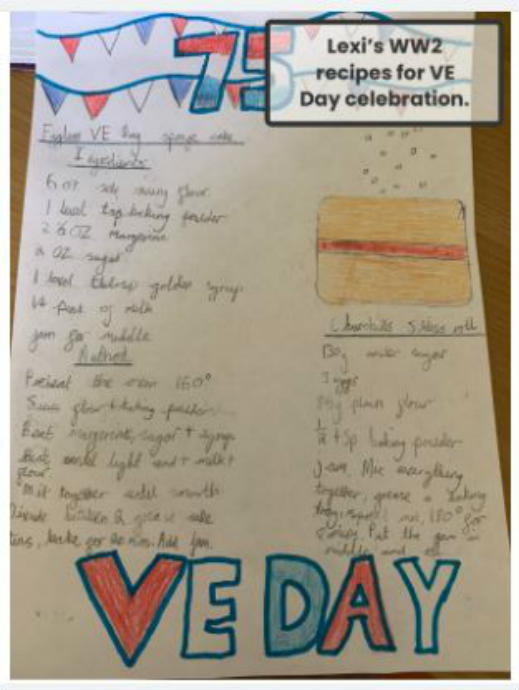 75
Lexi's WW2
recipes for VE
Day celebration.
VE Day sponge cake
Ingredients
6 oz self raising flour
1 level tsp baking powder
2 ½ OZ margarine
2 OZ sugar
1 level tblsp golden syrup
1/4 of milk
jam for middle
Method
Preheat the oven 160°
flour + baking powder
Beat margarine, sugar + syrup
Beat until light and + milk +
flour
Mix together until smooth
Divide between 2 grease cake
tins, bake for 20 min. Add jam.
Churchills Swiss roll
sugar
3 eggs
plain flour
½ tsp baking powder
jam. Mix everything
together, grease a baking
180° for
Put the jam in
middle and
VE DAY